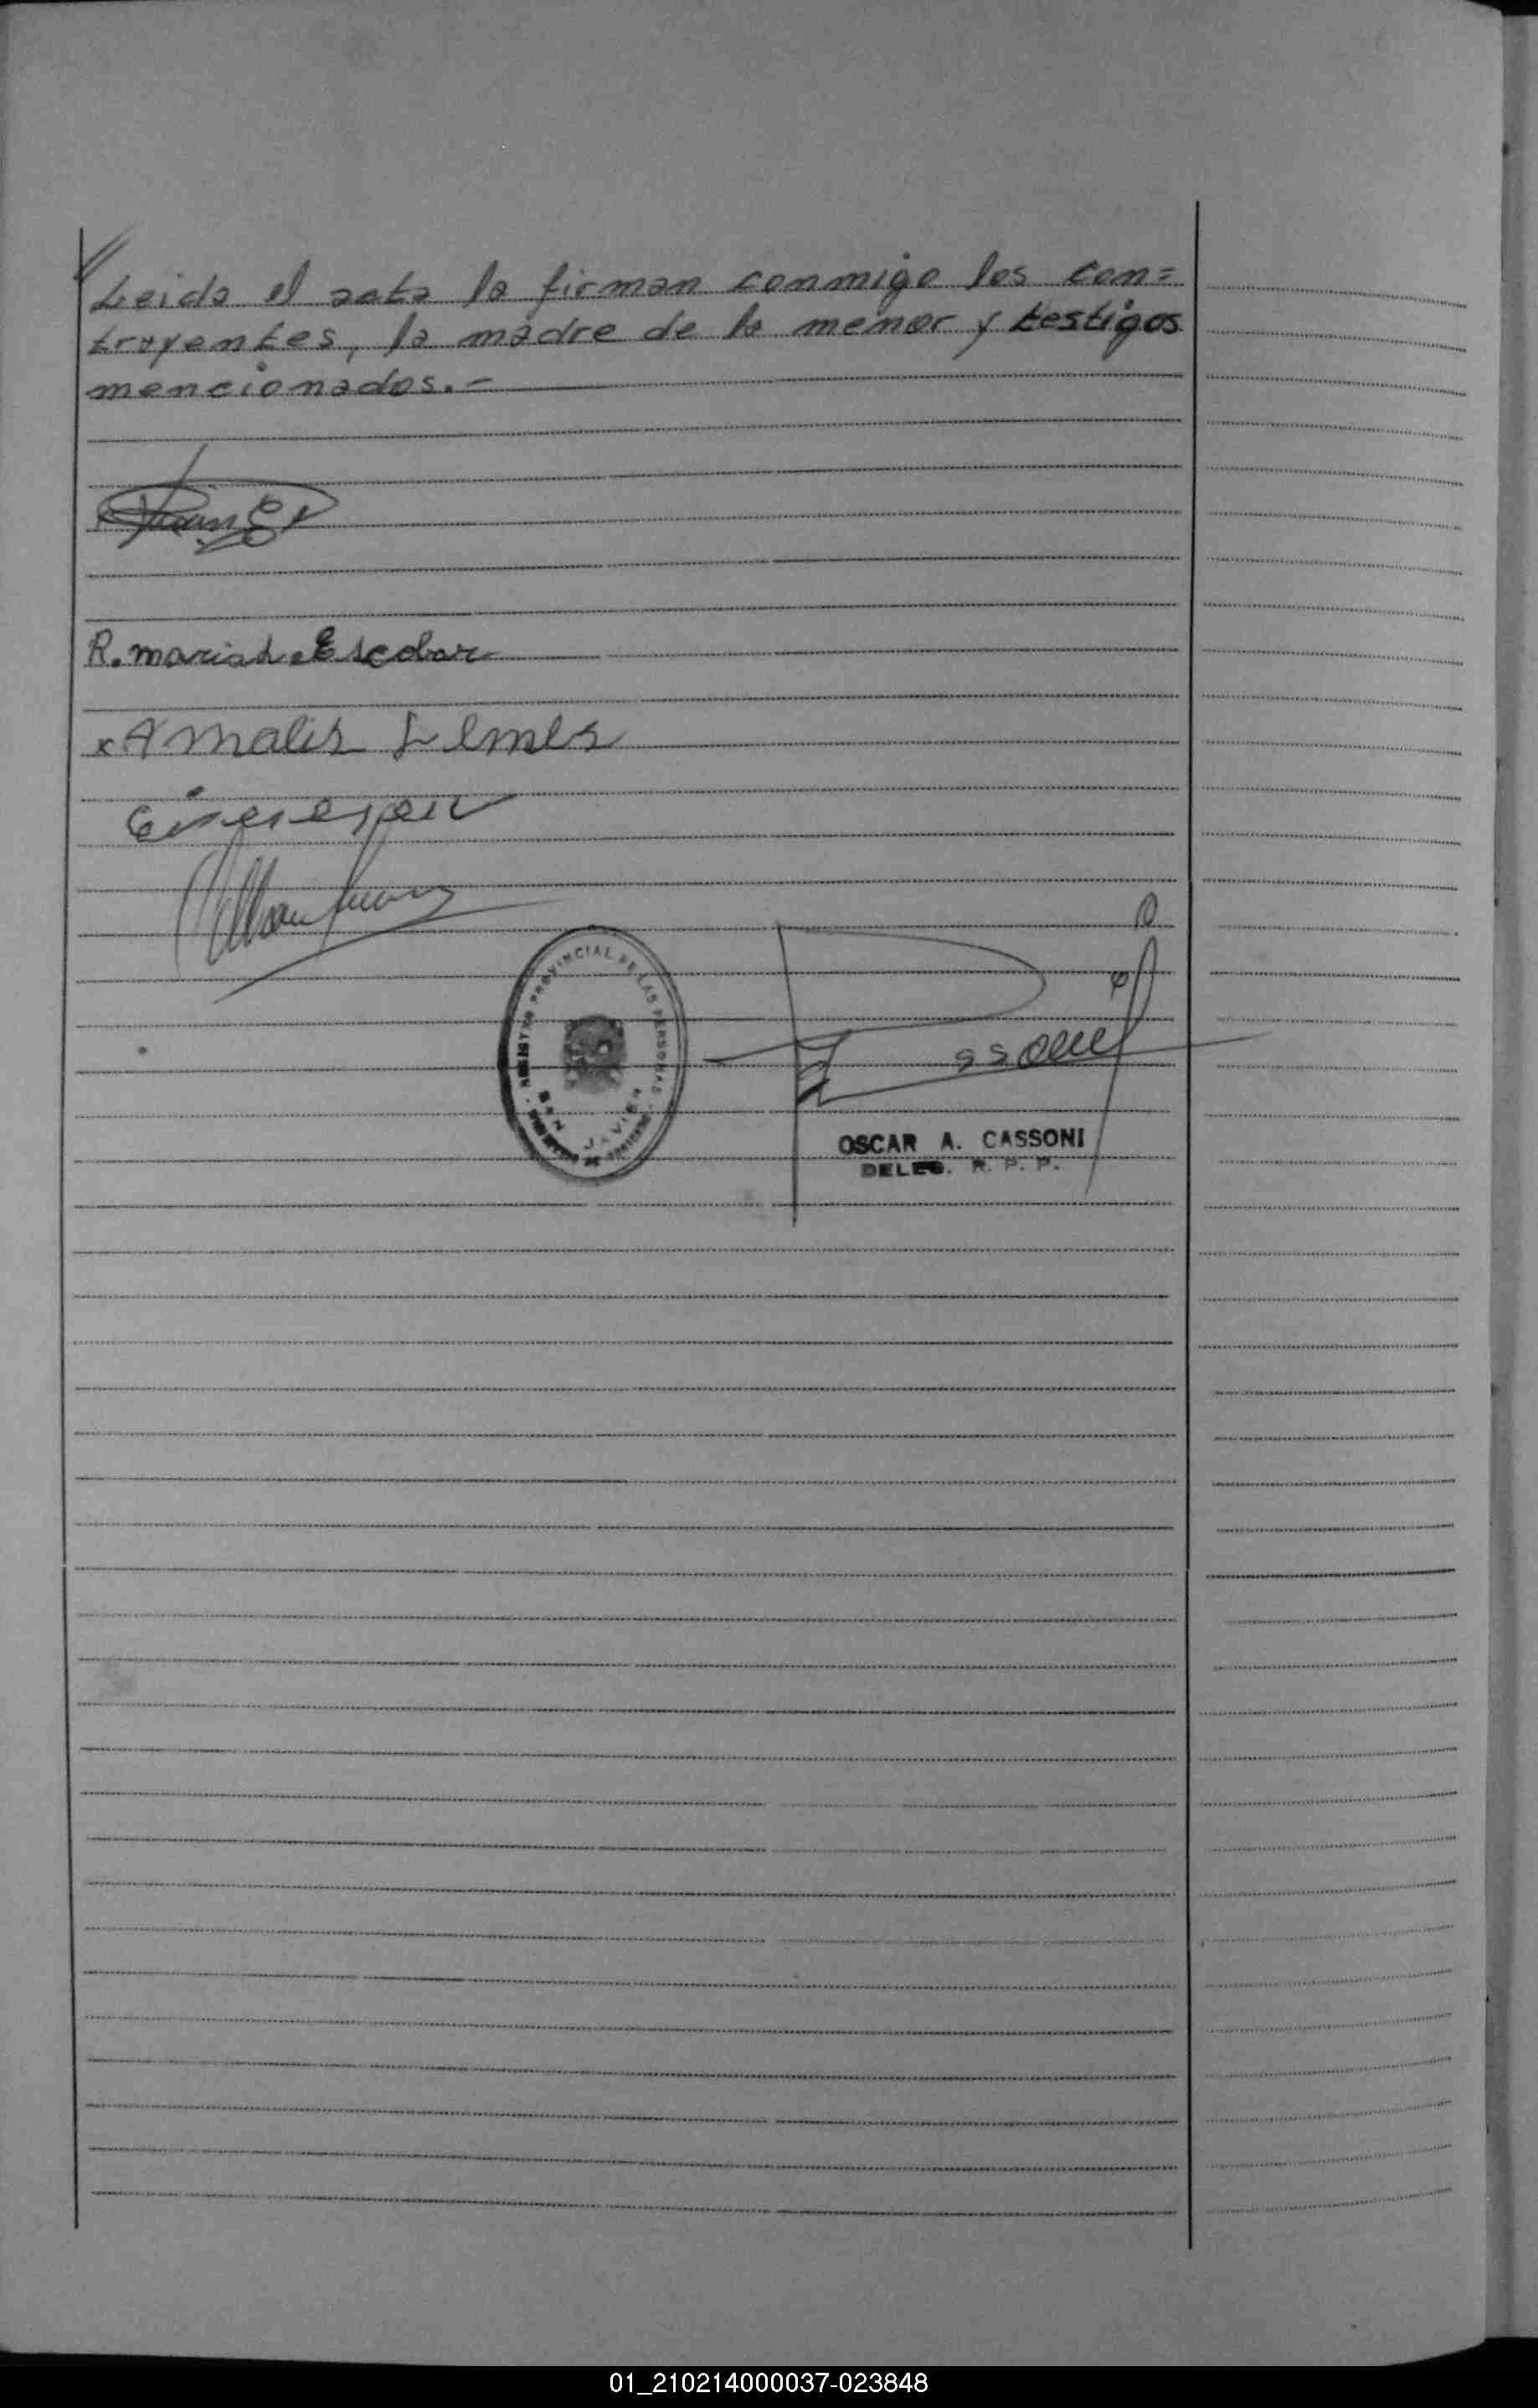 Leida el acta la firman conmigo los con=
trayentes, la madre de la menor y testigos
mencionados.-
R. maria d. Escobar
x Amalia Lemes
REGISTRO PROVINCIAL DE LAS PERSONAS
SAN JAVIER
OSCAR A. CASSONI
DELEG. R. P. P.
01_210214000037-023848